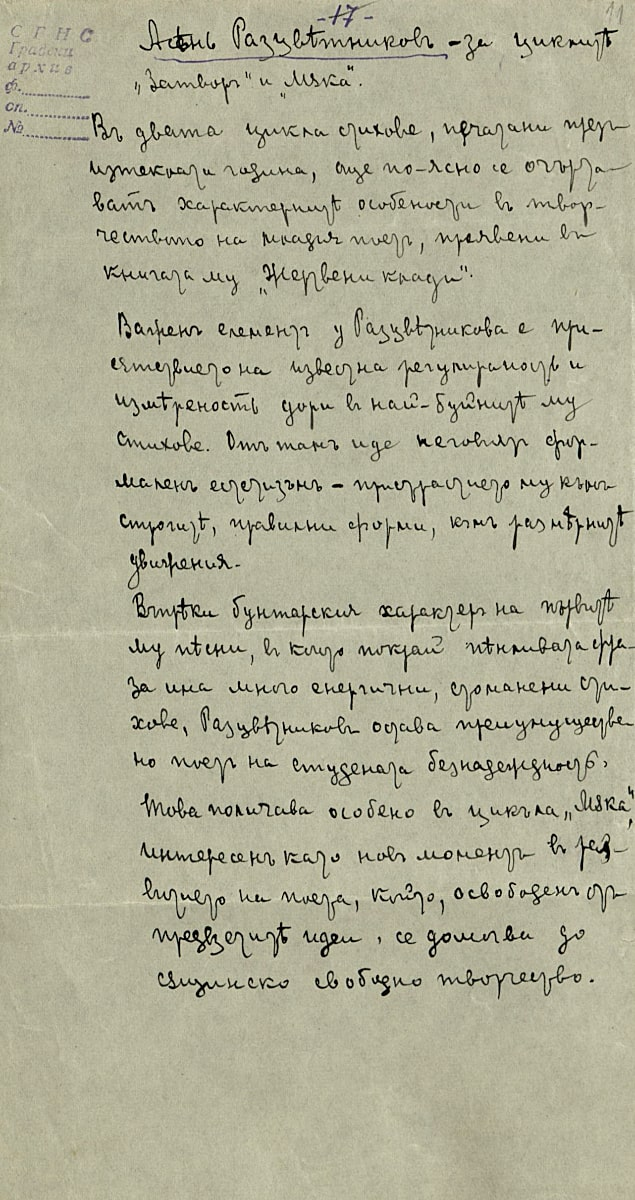 -17-
11
С Г Н С
Градски
архив
ф.
оп.
№
Асѣнь Разцвѣтниковъ - за циклитѣ
„Затворъ" и „Мѫка".
Въ двата цикла стихове, печатани презъ
изтеклата година, още по-ясно се очърта-
ватъ характернитѣ особености въ твор-
чеството на младия поетъ, проявени въ
книгата му „Жертвени клади".
Важенъ елементъ у Разцвѣтникова е при-
сѫтствието на известна регулираность и
измѣреность дори въ най-буйнитѣ му
стихове. Отъ тамъ иде неговиятъ фор-
маленъ естетизъмъ - пристрастието му къмъ
строгитѣ, правилни форми, къмъ размѣрнитѣ
движения.
Въпрѣки бунтарския характеръ на първитѣ
му пѣсни, в които покрай пѣнливата фра-
за има много енергични, стоманени сти-
хове, Разцвѣтниковъ остава преимуществе
но поетъ на студената безнадеждность.
Това поличава особено въ цикъла „Мѫка",
интересенъ като новъ моментъ въ раз-
витието на поета, който, освободенъ отъ
предвзетитѣ идеи, се домогва до
сѫщинско свободно творчество.